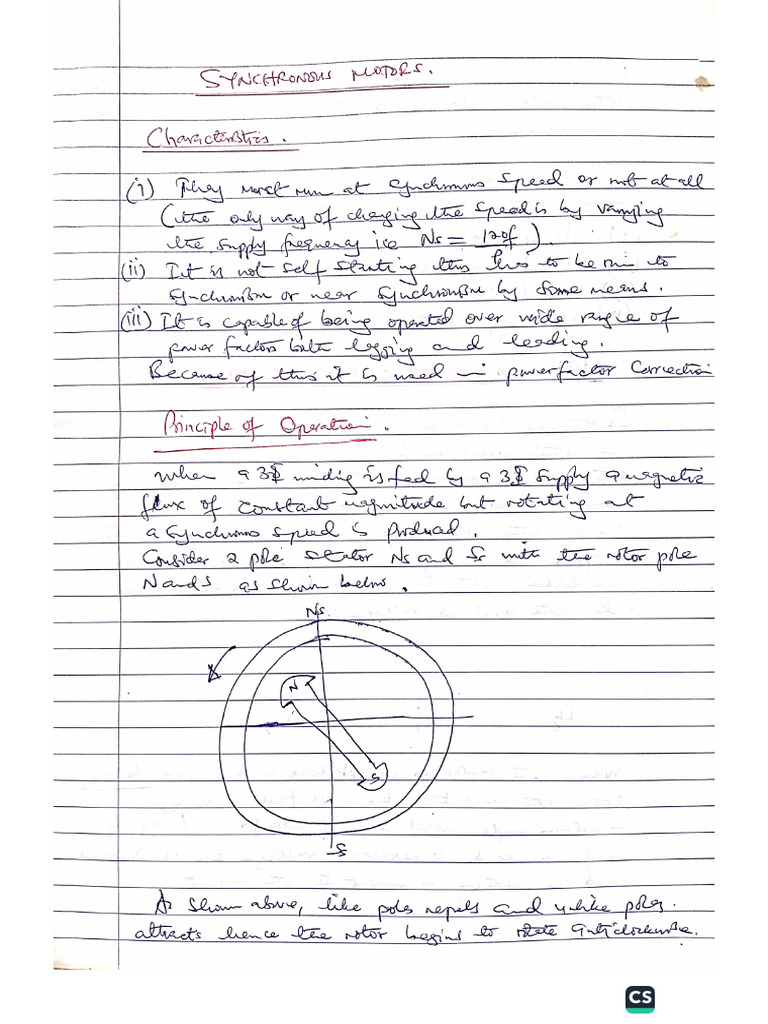 SYNCHRONOUS MOTORS.
Characteristics.
(i) They must run at synchronous speed or not at all
(the only way of changing the speed is by varying
the supply frequency i.e Ns = 120f/P).
(ii) It is not self starting thus has to be run to
synchronism or near synchronism by some means.
(iii) It is capable of being operated over wide range of
power factors both lagging and leading.
Because of this it is used in power factor correction
Principle of Operation.
When a 3ϕ winding is fed by a 3ϕ supply a magnetic
flux of constant magnitude but rotating at
a synchronous speed is produced.
Consider 2 pole stator Ns and Ss with the rotor pole
N and S as shown below.
Ns
N
S
Ss
As shown above, like poles repels and unlike poles
attracts hence the rotor begins to rotate anticlockwise.
CS